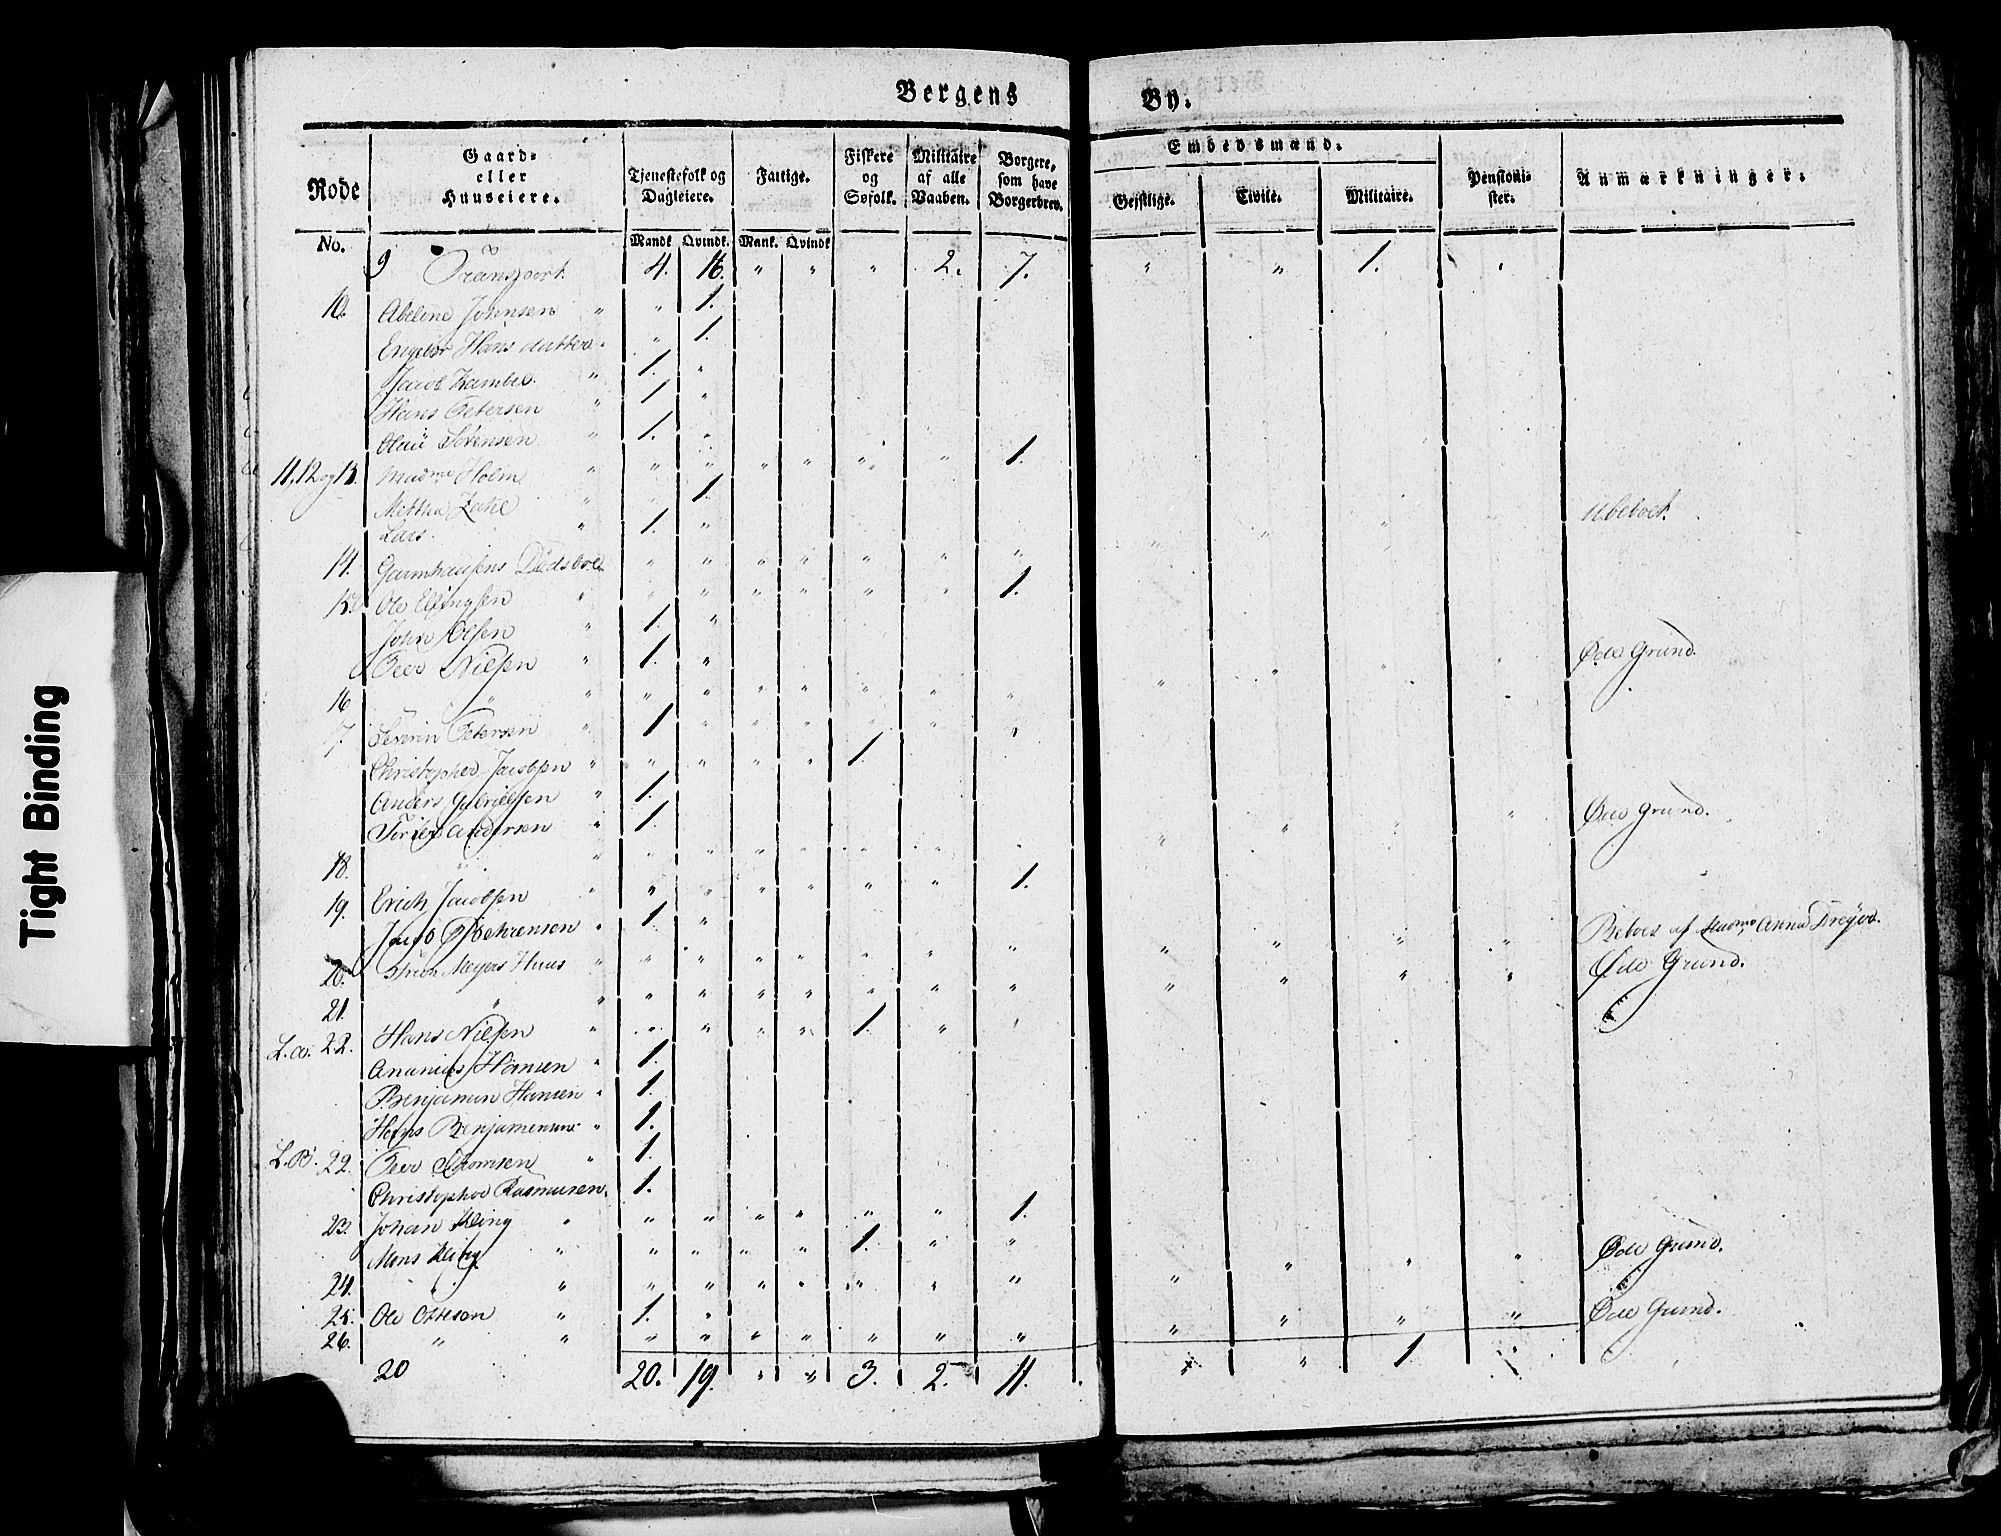 Tight Binding
Bergens By.
Rode No.
Gaard- eller Huuseiere.
Tjenestefolk og Dagleiere. Mandk Qvindk.
Fattige. Mank. Qvindk
Fiskere og Søfolk.
Militaire af alle Vaaben.
Borgere, som have Borgerbrev.
Embedsmænd.
Gejstlige. Civile. Militaire.
Pensioni- ster.
Anmærkninger.
9 Transport. 4. 16. " " " 2. 7. " " 1. "
10. Abeline Johnsen " " 1.
Engebor Hans datter " " 1.
Jacob " 1. "
Hans Petersen " 1. "
Olaü Sørensen " 1. "
11, 12 og 13. Madme Holm " " " " " " " 1.
Mettha " " 1.
Lars. " 1. "
14. Garmhausens Dødsboe " " " " " " " " " " Ubeboet.
15. Ole Ellingsen " " " " " " " 1.
John Olsen " 1. "
Peer Nielsen " 1. "
16 " " " " " " " " " " " " " Øde Grund.
17. Severin Petersen " 1. " " " " " "
Christopher Jacobsen " " " " " 1.
Anders Gabrielsen " 1.
Andersen " 1.
18. " " " " " " " " " " " " " Øde Grund.
19. Erich Jacobsen " " " " " " " 1.
Jacob Behrensen " 1. "
20. Meyers Huus " " " " " " " " " " " " Beboes af Madme Anna Dreyer.
21. " " " " " " " " " " " " " Øde Grund.
L. a. 22. Hans Nielsen " " " " " 1. " "
Ananias Hansen " 1.
Benjamin Hansen " 1.
Hans Benjaminsen " 1.
L. B. 22. Peer Thomsen " 1.
Christopher Rasmusen. 1.
23. Johan Kling " " " " " " " 1.
Mons Kling " " " " " 1. " "
24. " " " " " " " " " " " " " Øde Grund.
25. Ole Ottesen " 1. "
26. " " " " " " " " " " " " " Øde Grund.
20 20. 19. " " 3. 2. 11. " " 1. "